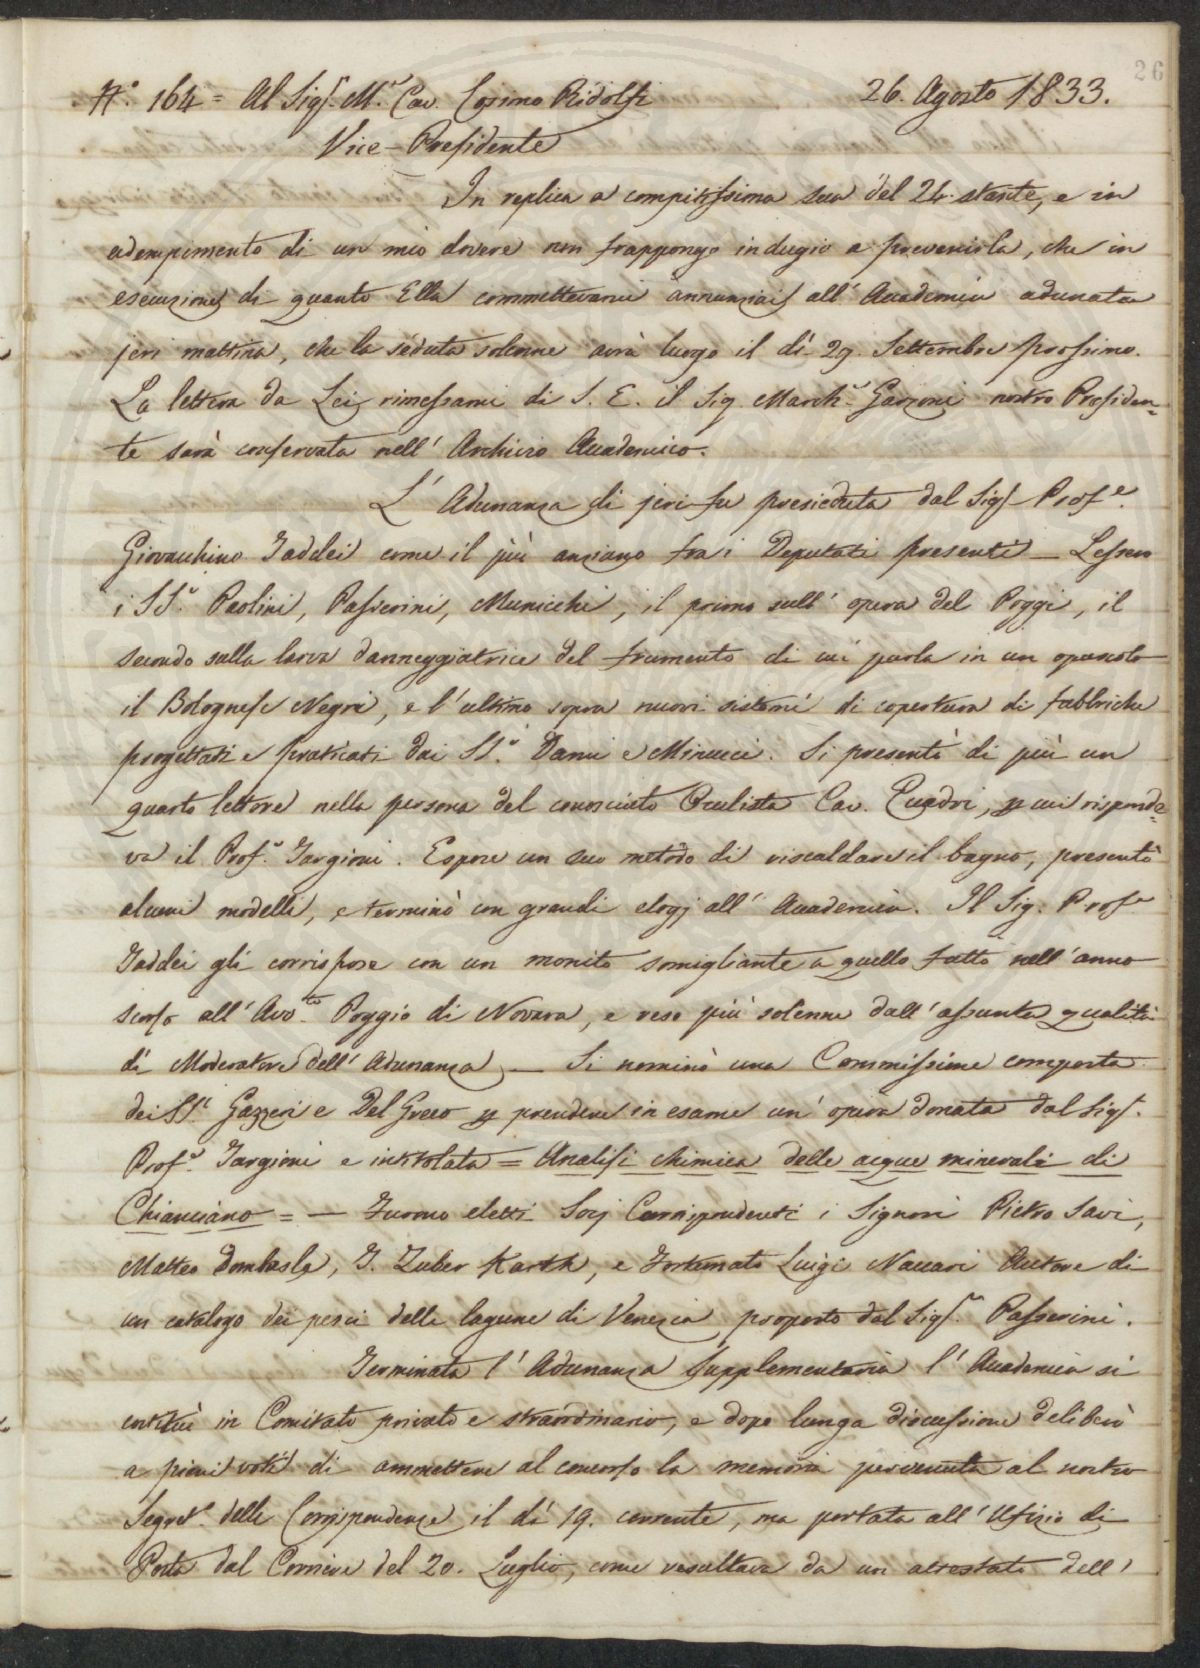 26
N.° 164 = Al Sig.r M.se Cav. Cosimo Ridolfi 26. Agosto 1833.
Vice-Presidente
In replica a compitissima sua del 24. stante, e in
adempimento di un mio dovere non frappongo indugio a prevenirla, che in
esecuzione di quanto Ella commettevami annunziai all' Accademia adunata
jeri mattina, che la seduta solenne avrà luogo il dì 29. Settembre prossimo.
La lettera da Lei rimessami di S. E. il Sig. March.e Garzoni nostro Presiden=
te sarà conservata nell' Archivio Accademico.
L' Adunanza di jeri fu presieduta dal Sig.r Prof.e
Giovacchino Taddei come il più anziano fra i Deputati presenti _ Lessero
i SS.i Paolini, Passerini, Municchi, il primo sull' opera del Poggi, il
secondo sulla larva danneggiatrice del frumento di cui parla in un opuscolo
il Bolognese Negri, e l'ultimo sopra nuovi sistemi di copertura di fabbriche
progettati e praticati dai SS.i Dami e Minucci. Si presentò di più un
quarto lettore nella persona del conosciuto Oculista Cav. Quadri, p cui risponde=
va il Prof.e Targioni. Espose un suo metodo di riscaldare il bagno, presentò
alcuni modelli, e terminò con grandi elogj all' Accademia. Il Sig. Prof.e
Taddei gli corrispose con un monito somigliante a quello fatto nell'anno
scorso all' Avv.to Poggio di Novara, e reso più solenne dall' assunta qualità
di Moderatore dell' Adunanza _ Si nominò una Commissione composta
dei SS.i Gazzeri e Del Greco p prendere in esame un' opera donata dal Sig.r
Prof.e Targioni e intitolata = Analisi chimica delle acque minerali di
Chianciano = _ Furono eletti Socj Corrispondenti i Signori Pietro Savi,
Matteo Dombasle, G. Zuber Karth, e Fortunato Luigi Naccari Autore di
un catalogo dei pesci delle lagune di Venezia proposto dal Sig.r Passerini.
Terminata l' Adunanza Supplementaria l' Accademia si
costituì in Comitato privato e straordinario, e dopo lunga discussione deliberò
a pieni voti di ammettere al concorso la memoria pervenuta al nostro
Segret.o delle Corrispondenze il dì 19. corrente, ma portata all' Ufizio di
Posta dal Corriere del 20. Luglio, come resultava da un attestato dell'